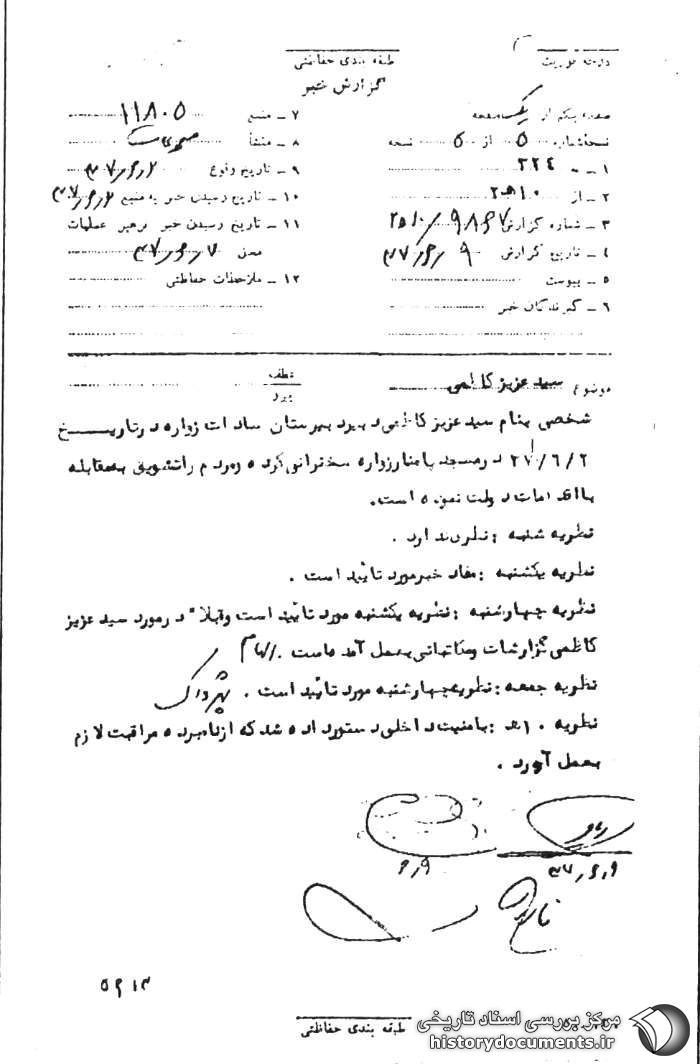 درجه فوریت
طبقه بندی حفاظتی
گزارش خبر
صفحه یکم از یک صفحه
نسخه‌شماره ۵ از ۵ نسخه
۱ - به ۳۲۴
۲ - از ۱۰ ه‍
۳ - شماره گزارش
۴ - تاریخ گزارش ۳۷/۶/۹
۵ - پیوست
۶ - گیرندگان خبر
۷ - منبع ۱۱۸۰۵
۸ - منشأ
۹ - تاریخ وقوع ۳۷/۶/۲
۱۰ - تاریخ رسیدن خبر به منبع ۳۷/۶/۲
۱۱ - تاریخ رسیدن خبر برهبر عملیات
محل ۳۷/۶/۷
۱۲ - ملاحظات حفاظتی
موضوع سید عزیز کاظمی
عطف
پیرو
شخصی بنام سید عزیز کاظمی دبیر دبیرستان سادات زواره در تاریخ
۳۷/۶/۲ در مسجد پامنار زواره سخنرانی کرده و مردم را تشویق به مقابله
با اقدامات دولت نموده است.
نظریه شنبه : نظری ندارد .
نظریه یکشنبه : مفاد خبر مورد تائید است .
نظریه چهارشنبه : نظریه یکشنبه مورد تائید است و قبلا" در مورد سید عزیز
کاظمی گزارشات و مکاتباتی بعمل آمده است .
نظریه جمعه : نظریه چهارشنبه مورد تائید است .
نظریه ۱۰ ه‍ : به امنیت داخلی دستور داده شد که از نامبرده مراقبت لازم
بعمل آورد .
۳۷/۶/۹
۶/۹
طبقه بندی حفاظتی
مرکز بررسی اسناد تاریخی
historydocuments.ir